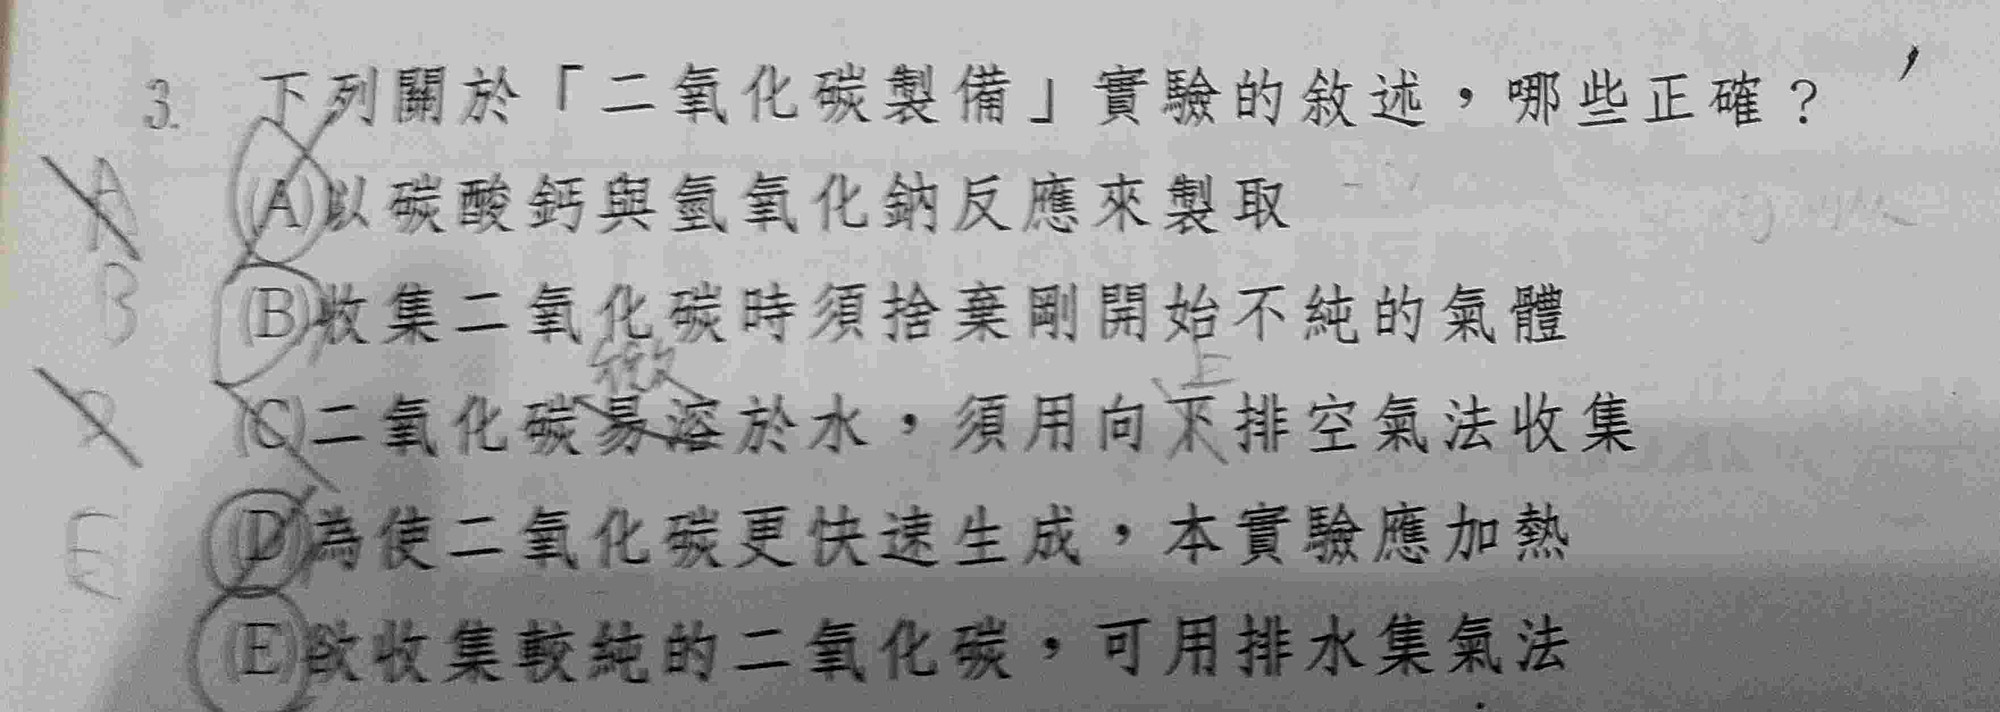 3. 下列關於「二氧化碳製備」實驗的敘述，哪些正確？
A (A)以碳酸鈣與氫氧化鈉反應來製取
B (B)收集二氧化碳時須捨棄剛開始不純的氣體
微 上
(C)二氧化碳易溶於水，須用向下排空氣法收集
E (D)為使二氧化碳更快速生成，本實驗應加熱
(E)欲收集較純的二氧化碳，可用排水集氣法